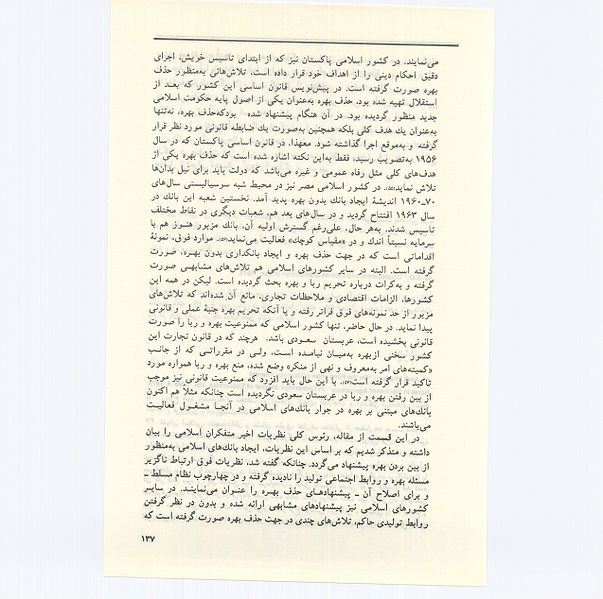 می‌نمایند. در کشور اسلامی پاکستان نیز که از ابتدای تاسیس خویش، اجرای
دقیق احکام دینی را از اهداف خود قرار داده است، تلاش‌هائی به‌منظور حذف
بهره صورت گرفته است. در پیش‌نویس قانون اساسی این کشور که بعد از
استقلال تهیه شده بود، حذف بهره به‌عنوان یکی از اصول پایه حکومت اسلامی
جدید منظور گردیده بود. در آن هنگام پیشنهاد شده بودکه‌حذف بهره، نه‌تنها
به‌عنوان یك هدف کلی بلکه همچنین به‌صورت یك ضابطه قانونی مورد نظر قرار
گرفته و به‌موقع اجرا گذاشته شود. معهذا، در قانون اساسی پاکستان که در سال
۱۹۵۶ به‌تصویب رسید، فقط به‌این نکته اشاره شده است که حذف بهره یکی از
هدف‌های کلی مثل رفاه عمومی و غیره می‌باشد که دولت باید برای نیل بدان‌ها
تلاش نماید. در کشور اسلامی مصر نیز در محیط شبه سوسیالیستی سال‌های
۷۰ـ۱۹۶۰ اندیشهٔ ایجاد بانك بدون بهره پدید آمد. نخستین شعبه این بانك در
سال ۱۹۶۳ افتتاح گردید و در سال‌های بعد هم، شعبات دیگری در نقاط مختلف
تاسیس شدند. به‌هر حال، علی‌رغم گسترش اولیه آن، بانك مزبور هنـوز هم با
سرمایه نسبتاً اندك و در «مقیاس کوچك» فعالیت می‌نماید. موارد فوق، نمونهٔ
اقداماتی است که در جهت حذف بهره و ایجاد بانکداری بدون بهـره، صورت
گرفته است. البته در سایر کشورهای اسلامی هم تلاش‌های مشابهـی صورت
گرفته و به‌کرات درباره تحریم ربا و بهره بحث گردیده است. لیکن در همه این
کشورها، الزامات اقتصادی و ملاحظات تجاری، مانع آن شده‌اند که تلاش‌های
مزبور از حد نمونه‌های فوق فراتر رفته و یا آنکه تحریم بهره جنبهٔ عملی و قانونی
پیدا نماید. در حال حاضر، تنها کشور اسلامی که ممنوعیت بهره و ربا را صورت
قانونی بخشیده است، عربستان سعـودی باشد. هرچند که در قانون تجارت این
کشور سخنی ازبهره به‌میـان نیامـده اسـت، ولـی در مقرراتـی که از جانـب
«کمیته‌های امر به‌معروف و نهی از منکر» وضع شده، منع بهره و ربا همواره مورد
تاکید قرار گرفته است. با این حال باید افزود که ممنوعیت قانونی نیز موجب
از بین رفتن بهره و ربا در عربستان سعودی نگردیده است چنانکه مثلاً هم اکنون
بانك‌های مبتنی بر بهره در جوار بانك‌های اسلامی در آنجـا مشغـول فعالیـت
می‌باشند.
در این قسمت از مقاله، رئوس کلی نظریات اخیر متفکران اسلامی را بیان
داشته و متذکر شدیم که بر اساس این نظریات، ایجاد بانك‌های اسلامی به‌منظور
از بین بردن بهره پیشنهاد می‌گردد. چنانکه گفته شد، نظریات فوق ارتباط ناگزیر
مسئله بهره و روابط اجتماعی تولید را نادیده گرفته و در چهارچوب نظام مسلط ـ
و برای اصلاح آن ـ پیشنهادهـای حذف بهـره را عنوان می‌نماینـد. در سایـر
کشورهای اسلامی نیز پیشنهادهای مشابهی ارائه شده و بدون در نظر گرفتن
روابط تولیدی حاکم، تلاش‌های چندی در جهت حذف بهره صورت گرفته است که
۱۳۷